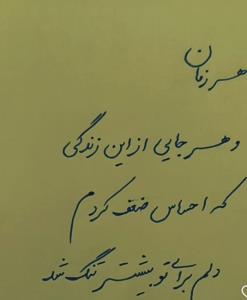 هر زمان
و هر جایی از این زندگی
که احساس ضعف کردم
دلم برای تو بیشتر تنگ شد